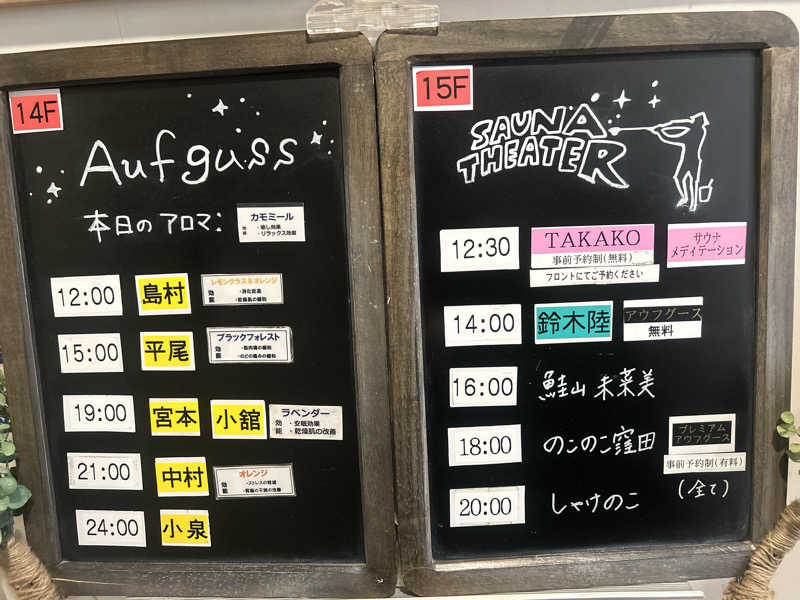 14F
Aufguss
本日のアロマ:
カモミール
効能
・癒し効果
・リラックス効果
12:00
島村
レモングラス&オレンジ
効能
・消化促進
・乾燥肌の緩和
15:00
平尾
ブラックフォレスト
効能
・筋肉痛の緩和
・のどの痛みの緩和
19:00
宮本
小舘
ラベンダー
効能
・安眠効果
・乾燥肌の改善
21:00
中村
オレンジ
効能
・ストレスの軽減
24:00
小泉
15F
SAUNA
THEATER
12:30
TAKAKO
事前予約制(無料)
フロントにてご予約ください
サウナ
メディテーション
14:00
鈴木陸
アウフグース
無料
16:00
鮭山未菜美
18:00
のこのこ窪田
プレミアム
アウフグース
事前予約制(有料)
(全て)
20:00
しゃけのこ